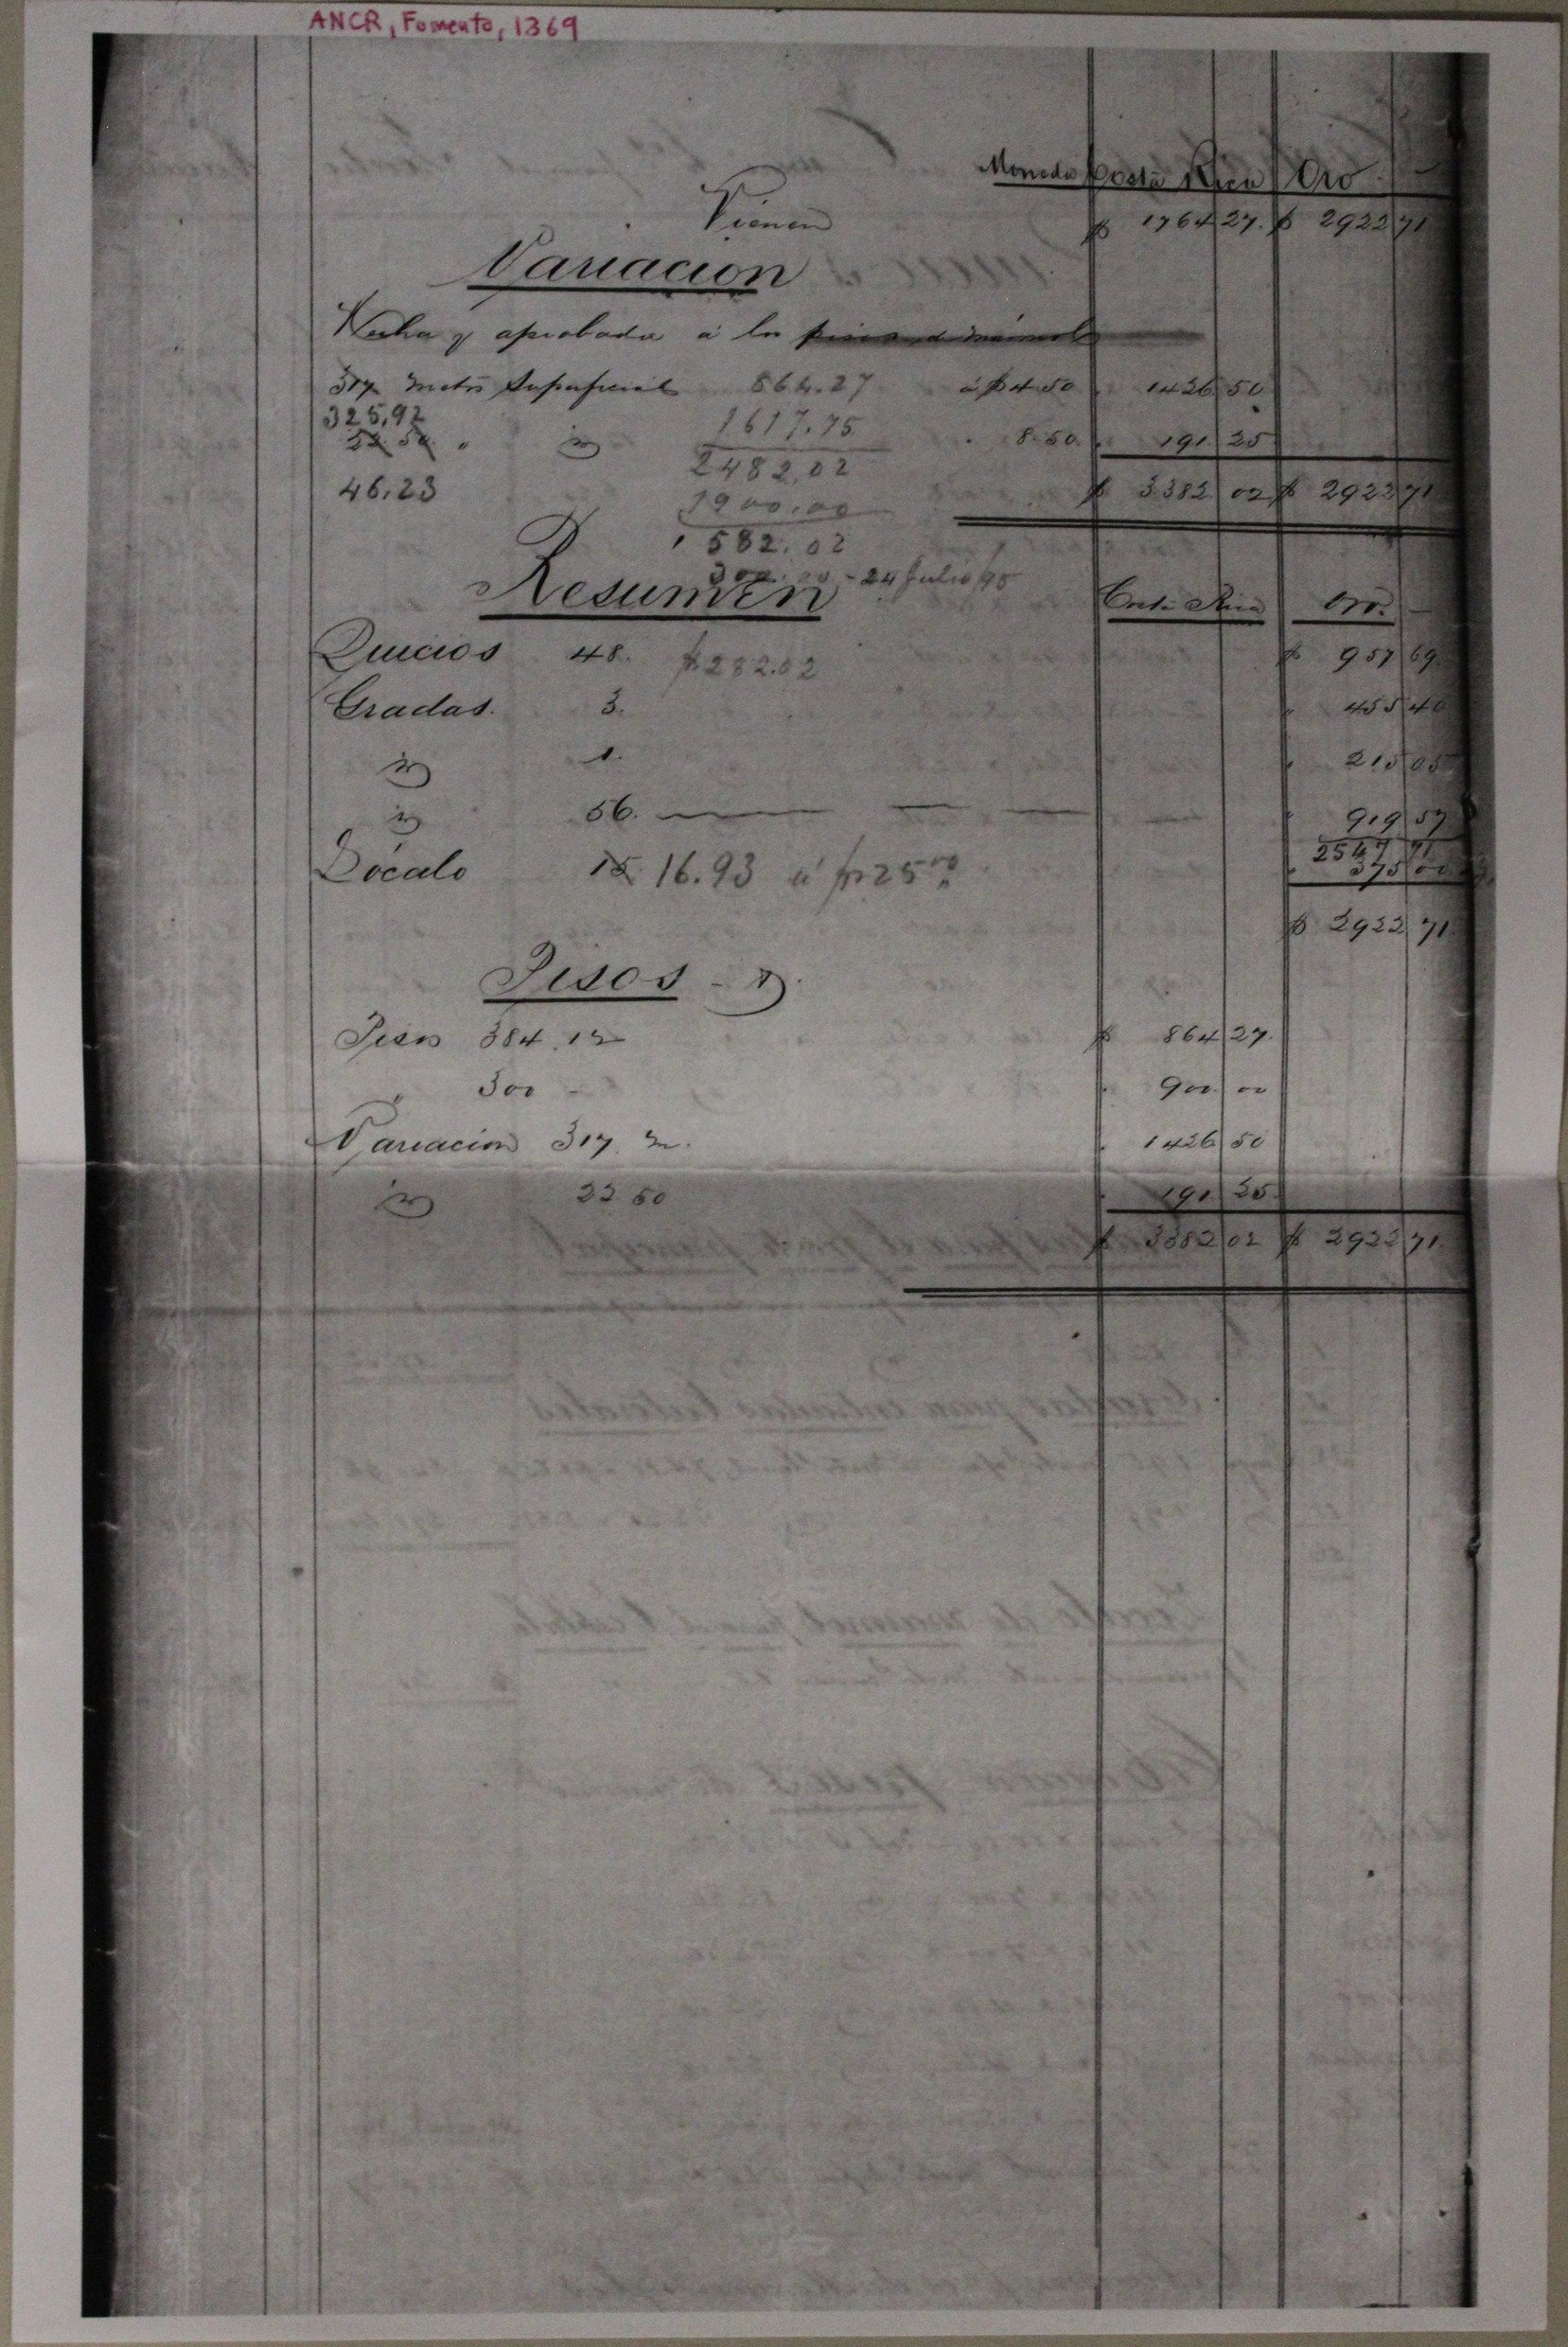 ANCR, Fomento, 1369
Moneda Costa Rica Oro
Vienen $ 1764 27. $ 2922 71
Variacion
Hecha y aprobada á la
317 metros Superficial 864.27 á $ 4 50 1426 50
325,92 1617.75
22.50 " id 8.50 191 25
2482,02
46,23 $ 3382 02 $ 2922 71
1900.00
582.02
300.00 - 24 Julio/95
Resumen Costa Rica Oro.
Quicios 48. $ 282.02 $ 957 69
Gradas. 3. 455 40
id 1. 215 05
id 56. 919 57
2547 71
Zócalo 15 16.93 á $ 25 00 375 00
$ 2922 71
Pisos - D.
Piso 384.12 $ 864 27.
" 300 - 900 00
Variacion 317. m. 1426 50
id 22 50 191 25
$ 3382 02 $ 2922 71